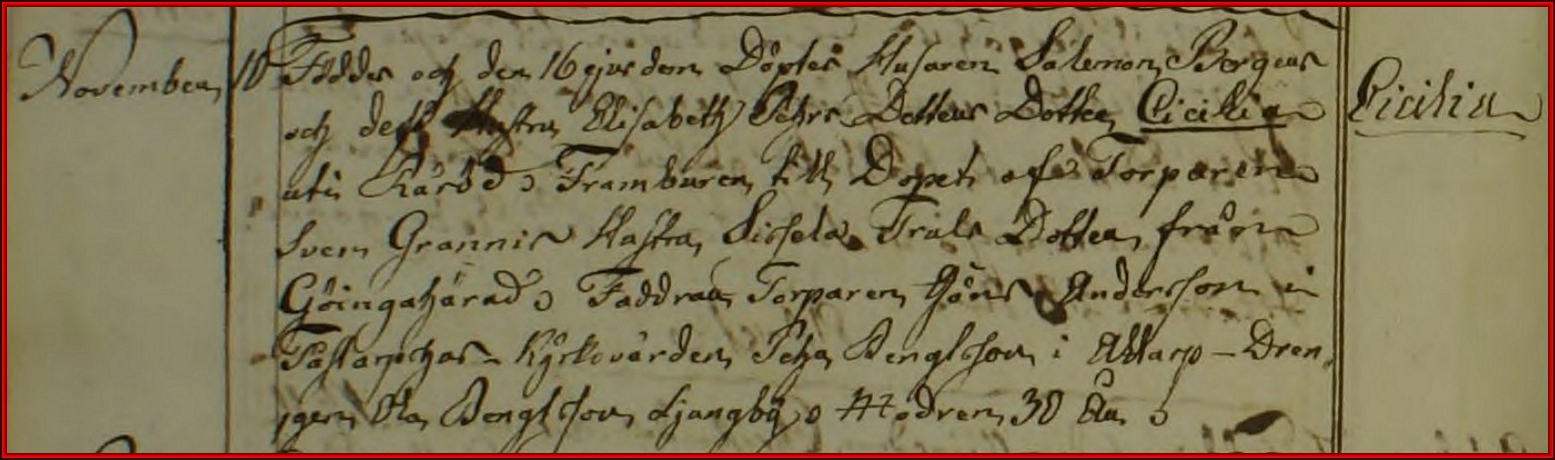 November 10 Föddes och den 16 ejusdem Döptes Husaren Salomon Bergens Cicilia
och dess Hustru Elisabeth Pehrs Dotters Dotter Cicilia
uti Frambüren till Dopet af Torparen
Sven Grannis Hustru Sissela Truls Dotter från
Göingahärad Faddrar Torparen Jöns Andersson i
Kyrkovärden Pehr Bengtsson i Attarp - Dren
gen Ola Bengtsson Ljungby Modren 30 År